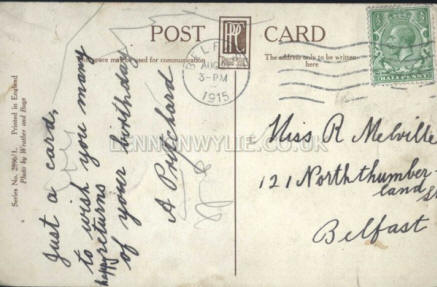 POST CARD
This space may be used for communication
The address only to be written here
BELFAST
AUG
3-PM
1915
HALFPENNY
Series No. 2896/1. Printed in England
Photo by Wrather and Buys
Just a card,
to wish you many
happy returns
of your birthday
A Pritchard
LENNONWYLIE.CO.UK
Miss R Melville
121 Norththumber-
land St
Belfast